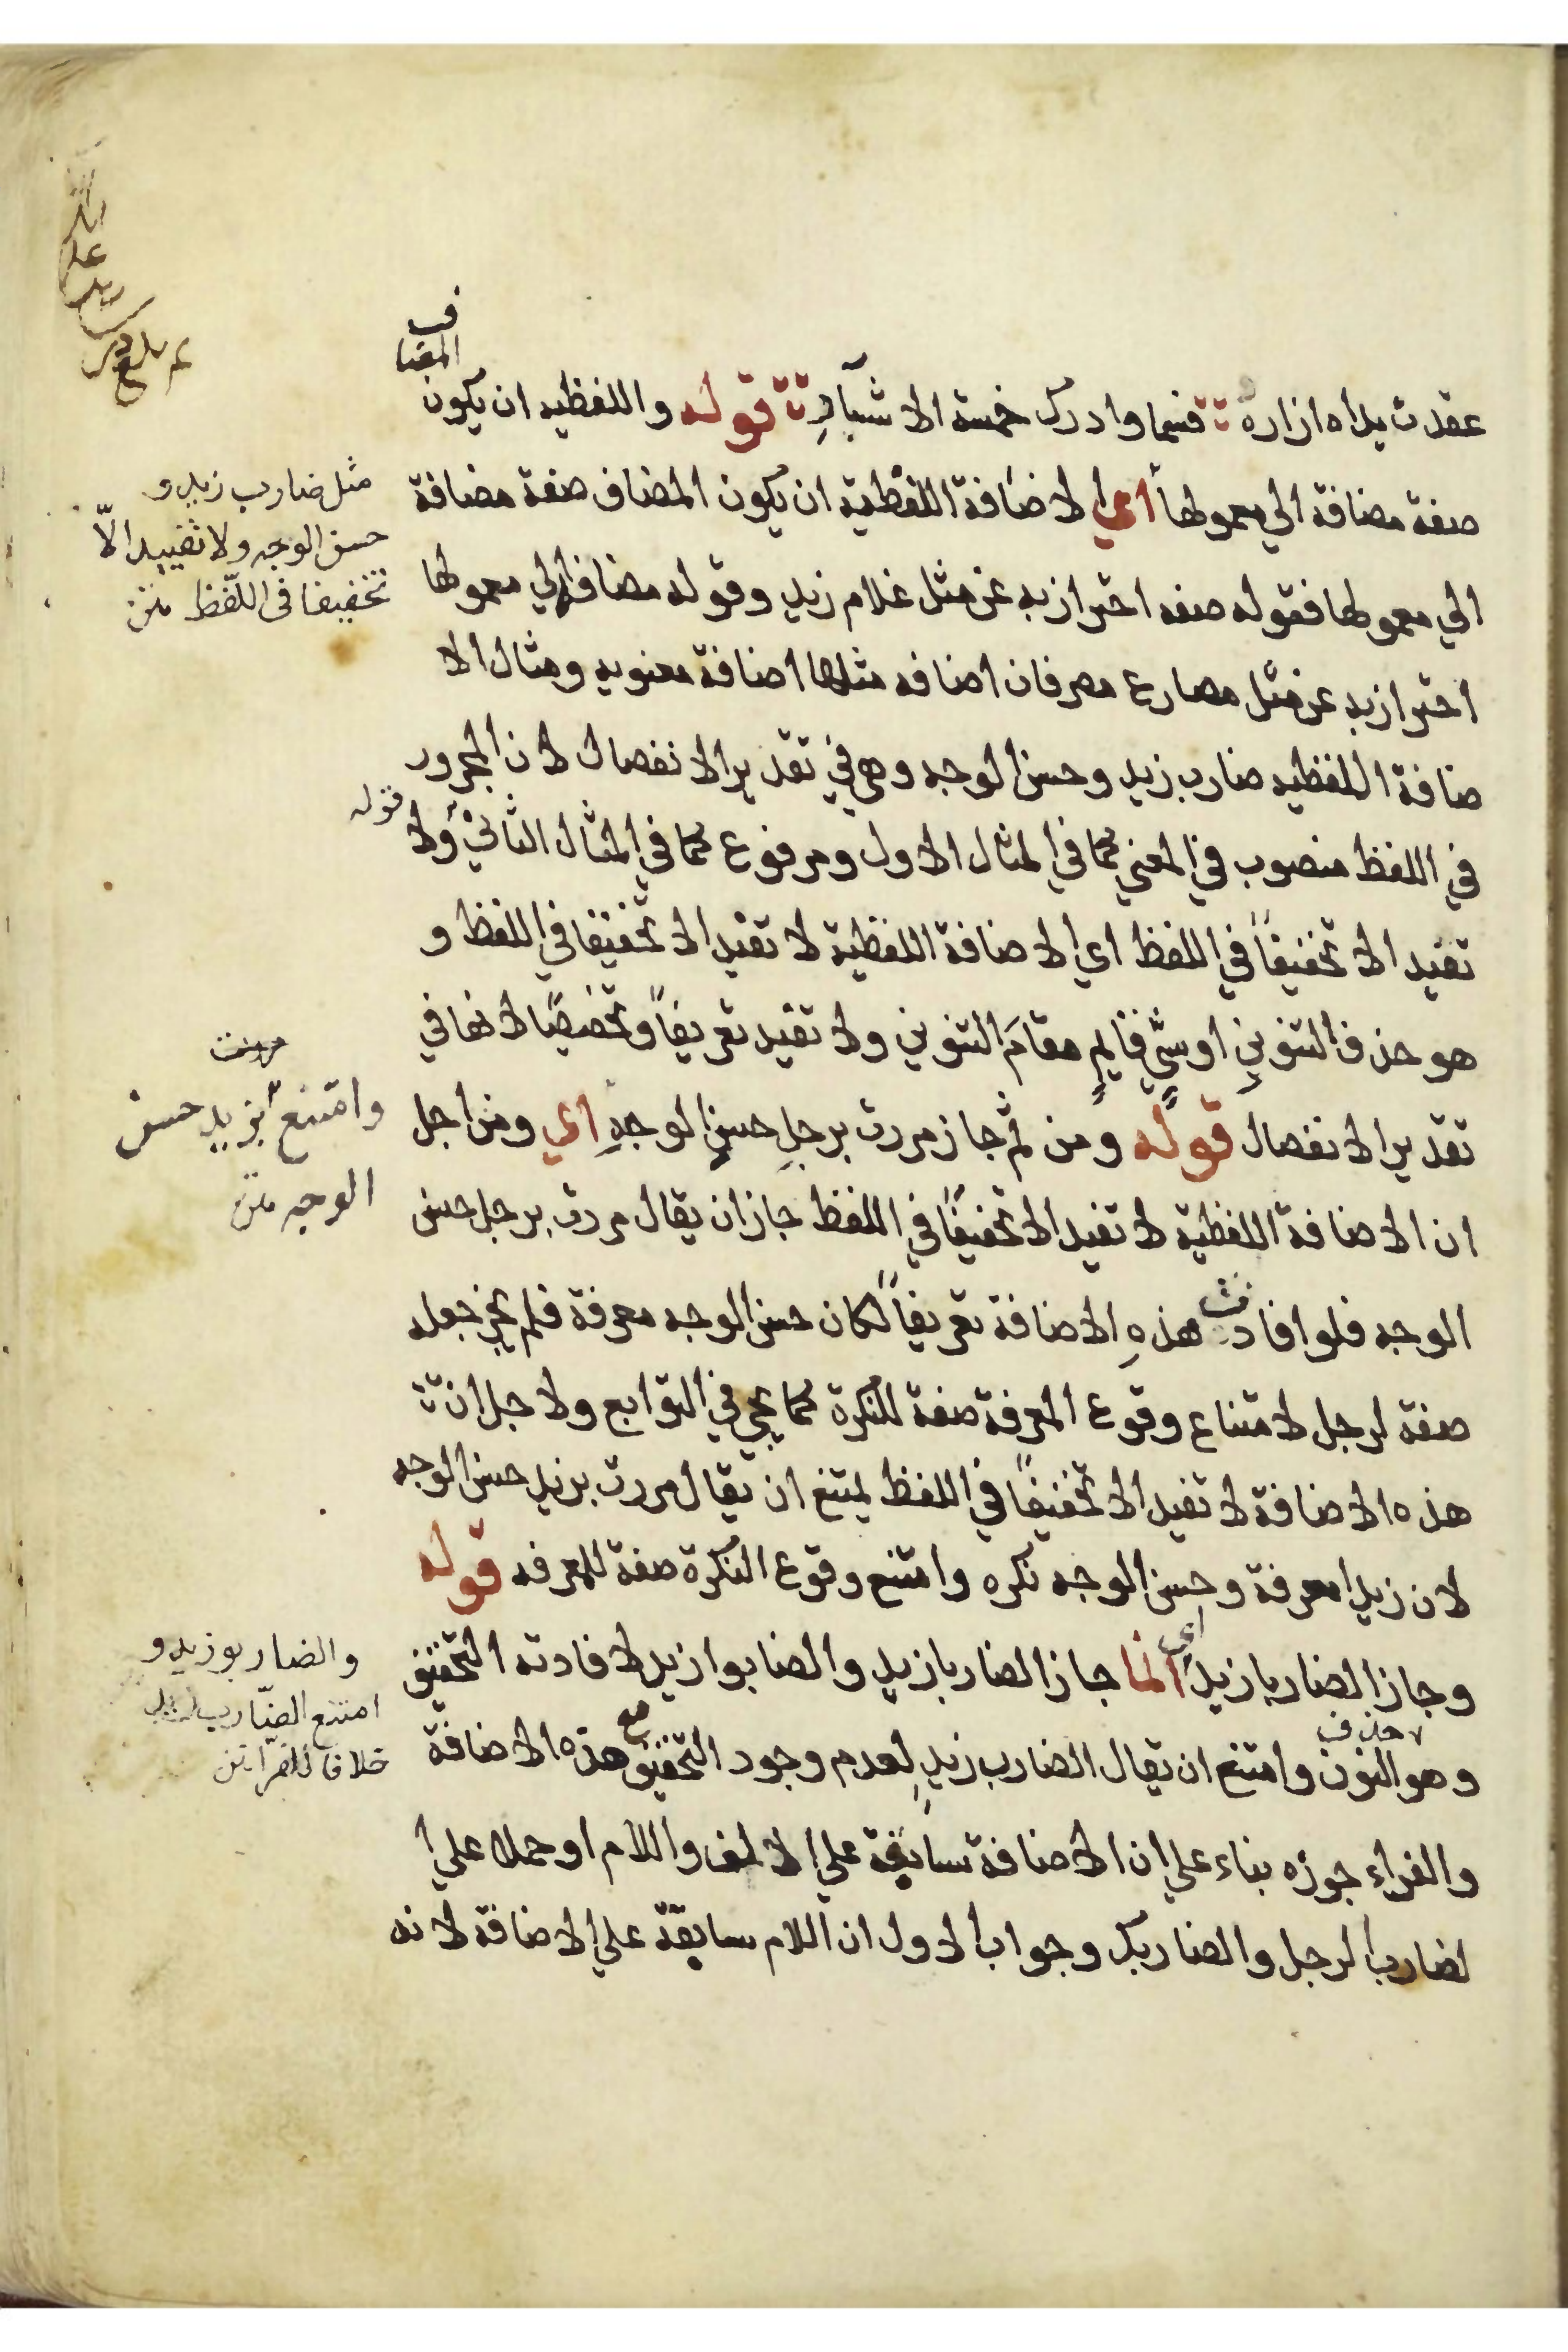 عقدت يداه ازاره فسما وادرك خمسة الاشبار قوله واللفظيه ان يكون المضاف
صفة مضافة الي معمولها اي الاضافة اللفظية ان يكون المضاف صفة مضافة
الي معمولها فقوله صفه احترازبه عن مثل غلام زيد وقوله مضافة الي معمولها
احترازبه عن مثل مصارع مصر فان اضافه مثلها اضافة معنويه ومثال الا
ضافة اللفظيه ضارب زيد وحسن الوجه وهي في تقدير الانفصال لان المجرور
في اللفظ منصوب في المعني كما في المثال الاول ومرفوع كما في المثال الثاني قوله ولا
تفيد الا تخفيفاً في اللفظ اي الاضافة اللفظية لا تفيد الا تخفيفا في اللفظ و
هو حذف التنوين او شيٍ قايمٍ مقامَ التنوين ولا تفيد تعريفاً وتخصيصًا لانها في
تقدير الانفصال قوله ومن ثم جاز مررت برجلٍ حسنِ الوجهِ اي ومن اجل
ان الاضافة اللفظية لا تفيد الا تخفيفًا في اللفظ جاز ان يقال مررت برجل حسن
الوجه فلو افادت هذهِ الاضافة تعريفاً لكان حسن الوجه معرفة فلم يجز جعله
صفة لرجل لامتناع وقوع المعرفة صفة للنكرة كما يجي في التوابع ولاجل ان
هذه الاضافة لا تفيد الا تخفيفًا في اللفظ يمتنع ان يقال مررت بزيد حسن الوجه
لان زيدا معرفة وحسن الوجه نكره وامتنع وقوع النكرة صفة للمعرفه قوله
وجاز الضاربا زيد اي انما جاز الضاربا زيد والضابوا زيد لافادته التخفيف
وهو حذف النون وامتنع ان يقال الضارب زيدٍ لعدم وجود التخفيف مع هذه الاضافة
والفراء جوزه بناء علي ان الاضافة سابقة علي الالف واللام او حملا علي ا
لضارب الرجل والضاربك وجواب الاول ان اللام سابقة علي الاضافة لانه
مثل ضارب زيد و
حسن الوجه ولا تفييد الّا
تخفيفا فى اللّفظ متن
وامتنع بزيد حسن
الوجه متن
والضاربو زيد و
امتنع الضّارب زيد
خلافا للفرّا متن